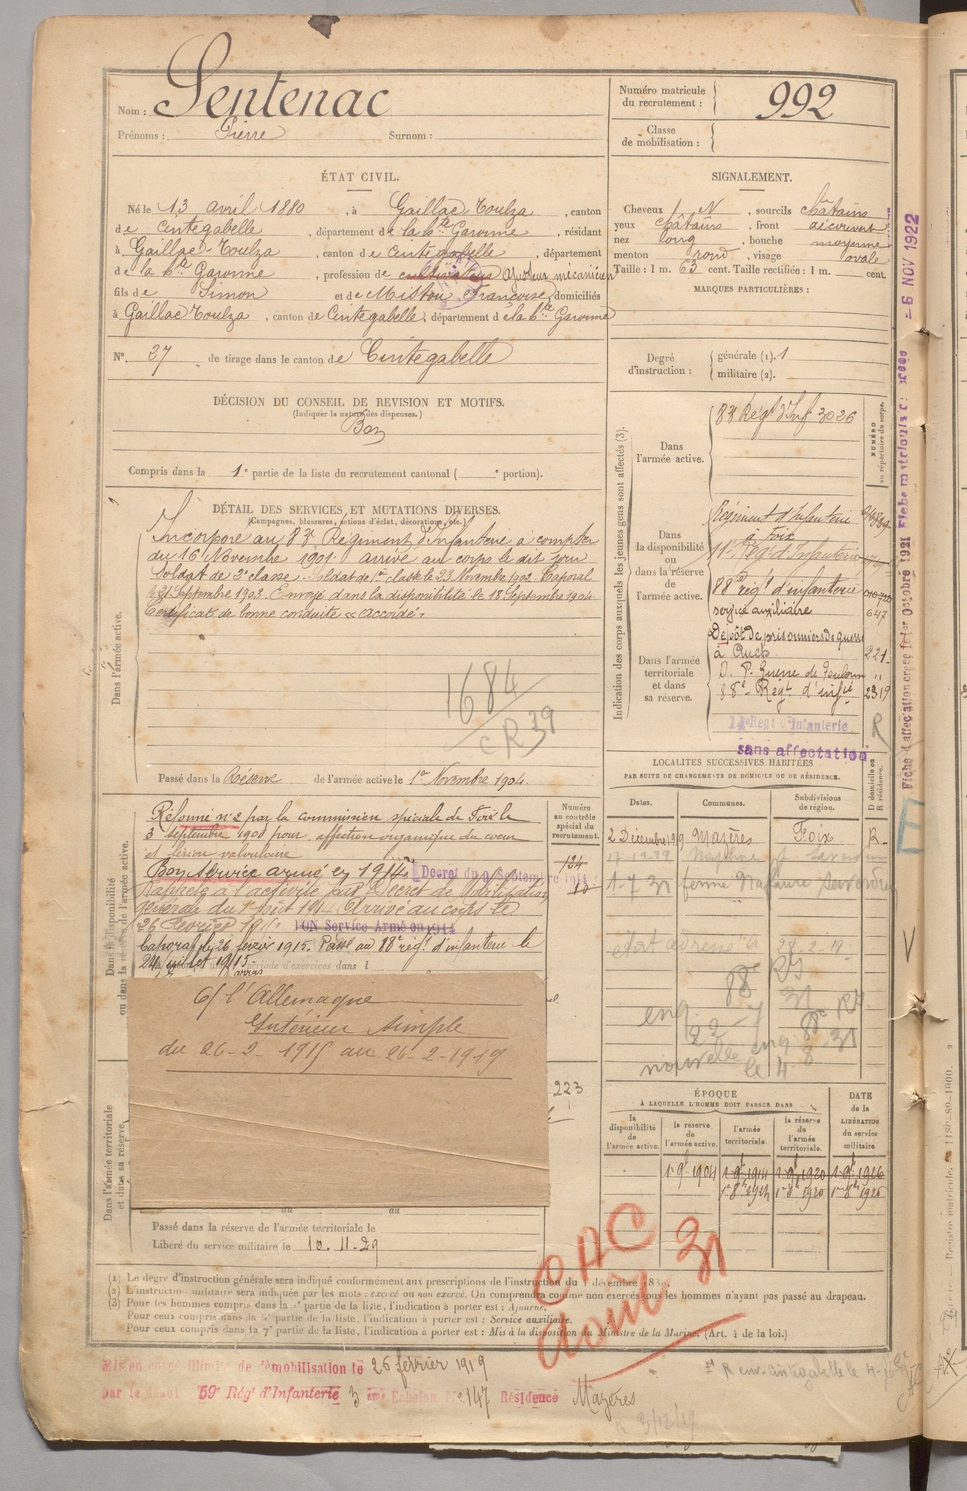 Nom : Sentenac
Prénoms : Pierre Surnom :
Numéro matricule du recrutement : 992
Classe de mobilisation :
ÉTAT CIVIL.
Né le 13 avril 1880, à Gaillac Toulza, canton
de Cintegabelle, département de la hte Garonne, résidant
à Gaillac Toulza, canton de Cintegabelle, département
de la hte Garonne, profession de cultivateur ajusteur mécanicien
fils de Simon et de Françoise, domiciliés
à Gaillac Toulza, canton de Cintegabelle, département de la hte Garonne
N° 27 de tirage dans le canton de Cintegabelle
SIGNALEMENT.
Cheveux N, sourcils châtains
yeux châtains, front découvert
nez long, bouche moyenne
menton rond, visage ovale
Taille : 1 m. 63 cent. Taille rectifiée : 1 m. cent.
MARQUES PARTICULIÈRES :
Degré d'instruction : générale (1). 1
militaire (2).
DÉCISION DU CONSEIL DE REVISION ET MOTIFS.
(Indiquer la nature des dispenses.)
Bon
Compris dans la 1e partie de la liste du recrutement cantonal ( e portion).
DÉTAIL DES SERVICES ET MUTATIONS DIVERSES.
(Campagnes, blessures, actions d'éclat, décorations, etc.)
Dans l'armée active.
Incorporé au 83e Régiment d'Infanterie à compter
du 16 Novembre 1901 arrivé au corps le dit jour
Soldat de 2e classe. Soldat de 1re classe le 23 Novembre 1902 Caporal
le 21 Septembre 1903. Envoyé dans la disponibilité le 18 Septembre 1904
Certificat de bonne conduite « accordé »
1684
CR 39
Passé dans la Réserve de l'armée active le 1er Novembre 1904.
Indication des corps auxquels les jeunes gens sont affectés (3).
NUMÉRO au répertoire du corps.
Dans l'armée active.
83e Régt d'Inf 3026
Dans la disponibilité ou dans la réserve de l'armée active.
Régiment d'Infanterie
à Foix
Régt d'Infanterie
88e régt d'infanterie
service auxiliaire 647
Dans l'armée territoriale et dans sa réserve.
Dépôt de prisonniers de guerre
à Auch 221
D. P. Guerre de Toulouse "
88e Régt d'infie 2319
Regt d'Infanterie R
sans affectation
Fiche d'affectation créée le 1er Octobre 1921 Fiche matricule créée - 6 NOV 1922
LOCALITÉS SUCCESSIVES HABITÉES
PAR SUITE DE CHANGEMENTS DE DOMICILE OU DE RÉSIDENCE.
Dates. Communes. Subdivisions de région. D domicile ou R résidence.
2 Décembre 1919 Mazères Foix R
1-7 31 ferme Saverdun
88 RI
31
nouvelle
le 4 8
Dans la disponibilité ou dans la réserve de l'armée active.
Numéro au contrôle spécial du recrutement.
Réformé n° 2 par la commission spéciale de Foix le
3 septembre 1908 pour affection organique du coeur
et lésion valvulaire
Bon service armé en 1914 Décret du 9 Septembre 1914
Rappelé à l'activité par Décret de Mobilisation
générale du 1er août 1914 Arrivé au corps le
26 Février 1915. BON Service Armé en 1914
Caporal le 26 février 1915. Passé au 88e régt d'infanterie le
24 juillet 1915.
C/ l'Allemagne
Intérieur simple
du 26-2-1915 au 26-2-1919
223
Dans l'armée territoriale et dans sa réserve.
ÉPOQUE
À LAQUELLE L'HOMME DOIT PASSER DANS
la disponibilité de l'armée active. la réserve de l'armée active. l'armée territoriale. la réserve de l'armée territoriale.
DATE de la LIBÉRATION du service militaire.
1 9bre 1904 1 9bre 1914 1 9bre 1920 1 9bre 1926
Passé dans la réserve de l'armée territoriale le
Libéré du service militaire le 10.11.29
OAC
Août 31
(1) Le degré d'instruction générale sera indiqué conformément aux prescriptions de l'instruction du décembre
(2) L'instruction militaire sera indiquée par les mots : exercé ou non exercé. On comprendra comme non exercés tous les hommes n'ayant pas passé au drapeau.
(3) Pour les hommes compris dans la partie de la liste, l'indication à porter est : Ajourné.
Pour ceux compris dans la partie de la liste, l'indication à porter est : Service auxiliaire.
Pour ceux compris dans la 7e partie de la liste, l'indication à porter est : Mis à la disposition du Ministre de la Marine. (Art. 4 de la loi.)
Mis en congé illimité de démobilisation le 26 février 1919
par le dépôt 59e Régt d'Infanterie 3ème Échelon N° 147 Résidence Mazères